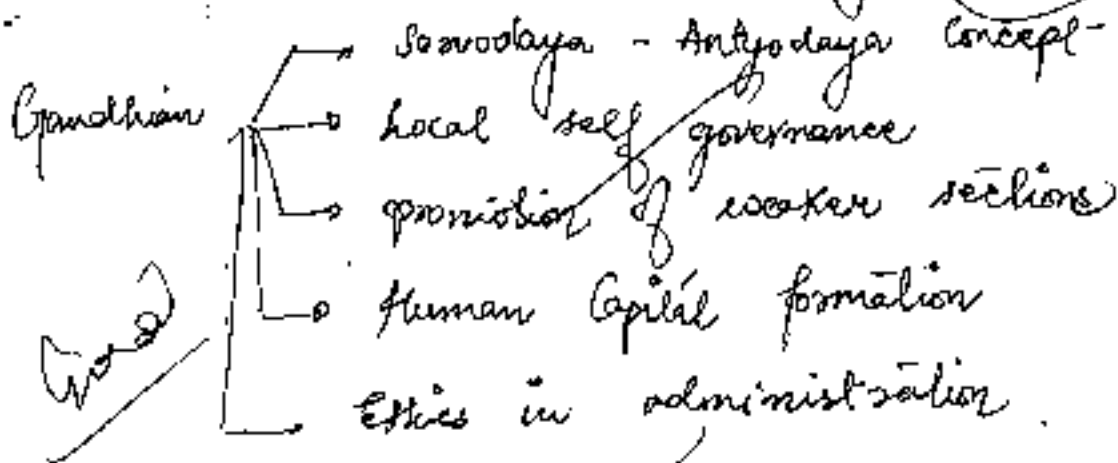 Sarvodaya - Antyodaya Concept
Gandhian
Local self governance
promotion of weaker sections
Human Capital formation
Good
Ethics in administration.